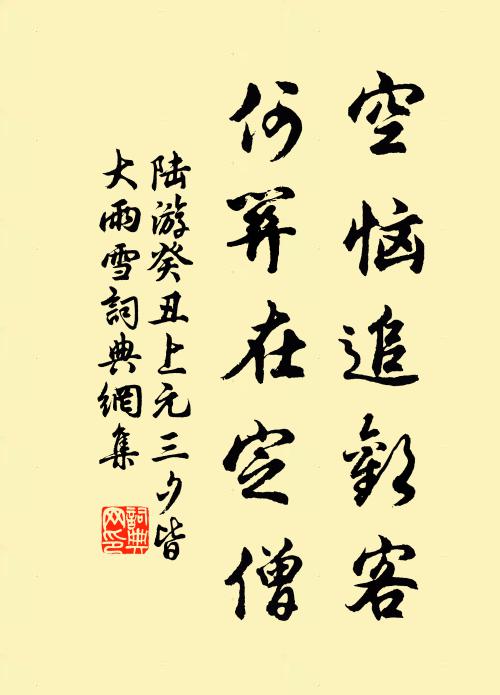 空恼追歡客
何關在定僧
陆游癸丑上元三夕皆
大雨雪詞典網集
詞典
网印